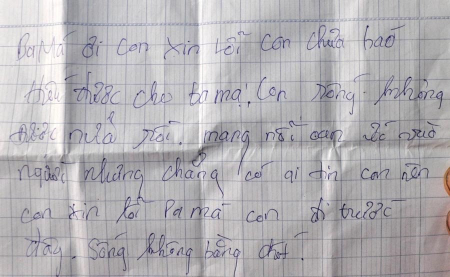 Ba Má ơi con xin lỗi con chưa báo
hiếu được cho ba má. Con sống không
được nữa rồi. mang nỗi oan ức vào
người nhưng chẳng có ai tin con nên
con xin lỗi ba má con đi trước
đây. Sống không bằng chết.